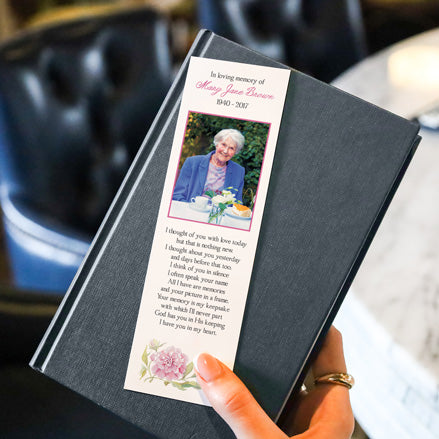 In loving memory of
Mary Jane Brown
1940 - 2017
I thought of you with love today
but that is nothing new.
I thought about you yesterday
and days before that too.
I think of you in silence
I often speak your name
All I have are memories
and your picture in a frame.
Your memory is my keepsake
with which I'll never part
God has you in His keeping
I have you in my heart.